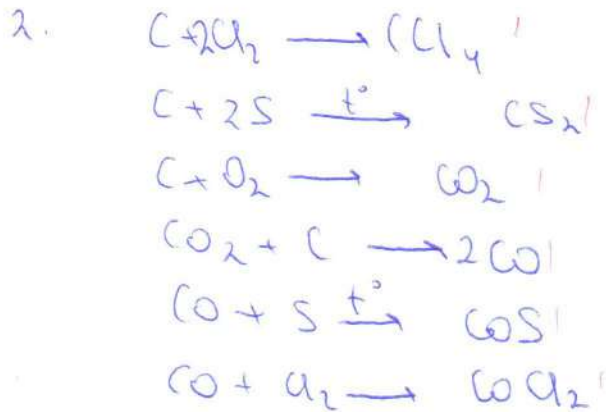 2. C + 2Cl₂ ⟶ CCl₄
C + 2S —t°→ CS₂
C + O₂ ⟶ CO₂
CO₂ + C ⟶ 2CO
CO + S —t°→ COS
CO + Cl₂ ⟶ COCl₂